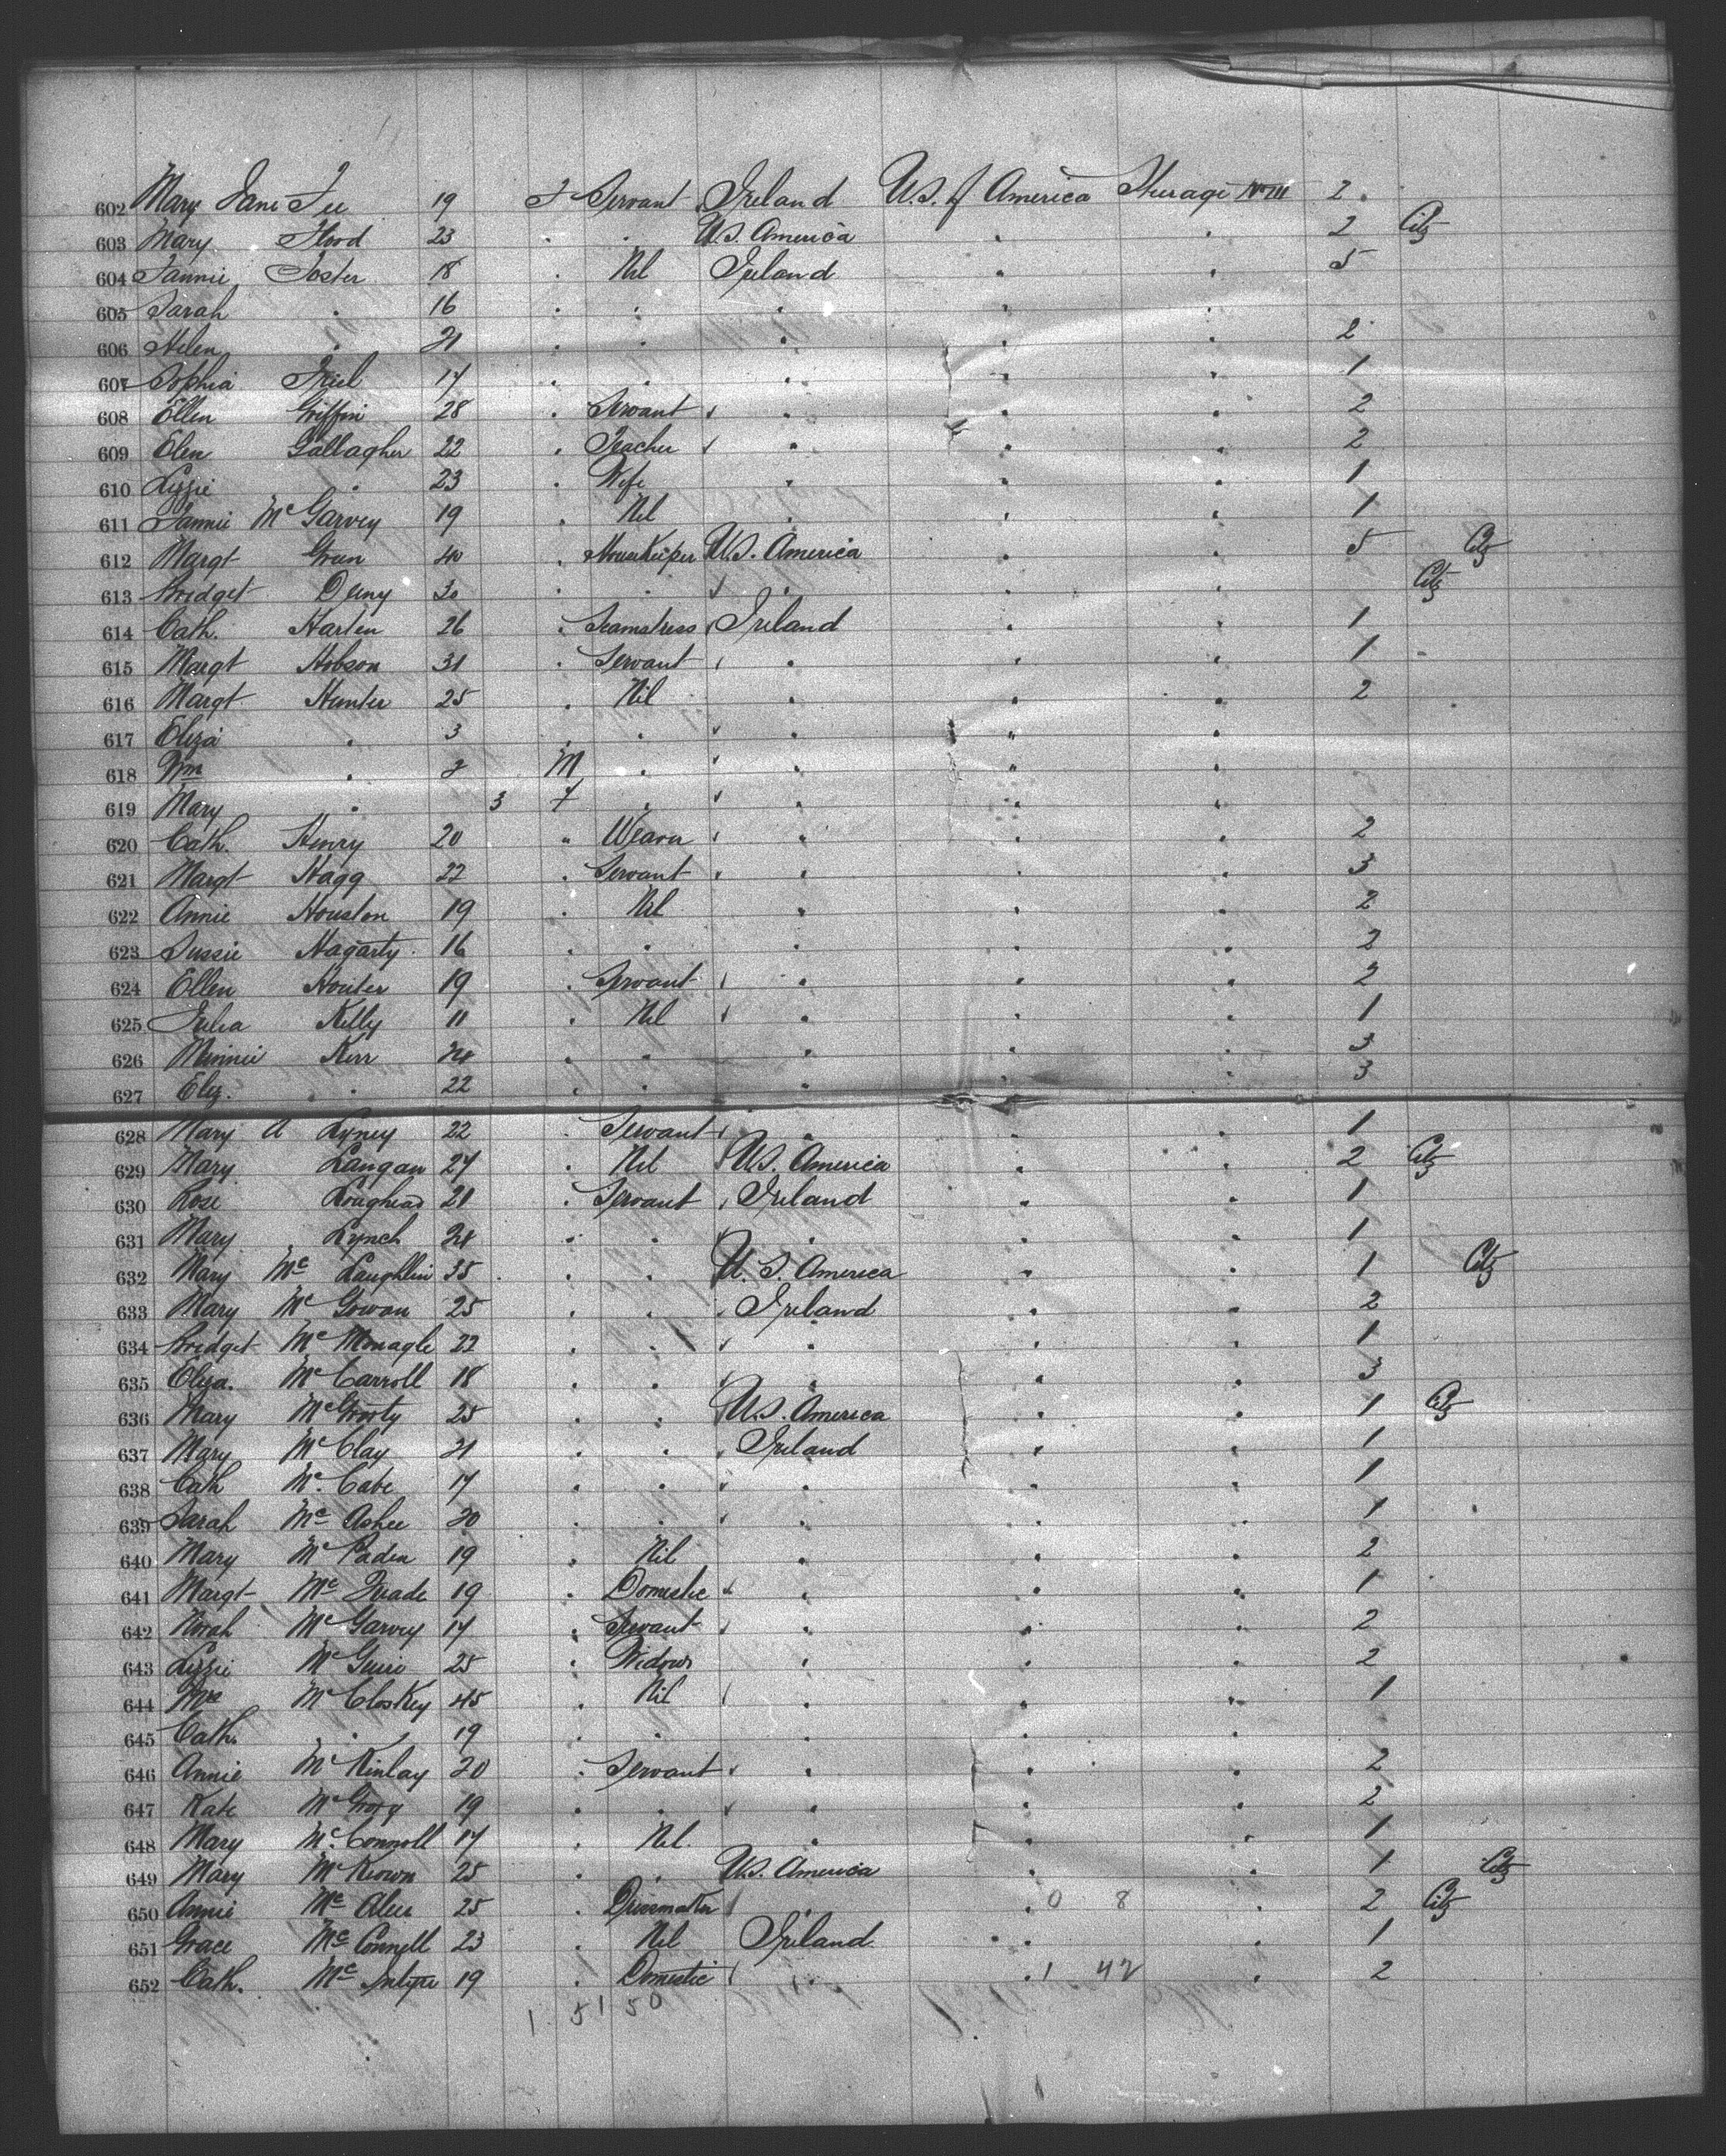 602 Mary Jane Fee 19 F Servant Ireland U.S. of America Steerage No III 2
603 Mary Flood 23 . . U.S. America . . 2 Citz
604 Fannie Foster 18 . Nil Ireland . . 5
605 Sarah . 16 . . . . .
606 Helen . 21 . . . . . 2
607 Sophia Friel 17 . . . . . 1
608 Ellen Griffin 28 . Servant . . . 2
609 Elen Gallagher 22 . Teacher . . . 2
610 Lizzie . 23 . Wife . . . 1
611 Fannie McGarvey 19 . Nil . . . 1
612 Margt Green 40 . Housekeeper U.S. America . . 5 Citz
613 Bridget Deny 30 . . . . . Citz
614 Cath. Harten 26 . Seamstress Ireland . . 1
615 Margt Hobson 31 . Servant . . . 1
616 Margt Hunter 25 . Nil . . . 2
617 Eliza . 3 . . . . .
618 Wm . 2 M . . . .
619 Mary . 3 F . . . .
620 Cath. Henry 20 " Weaver . . . 2
621 Margt Hagg 22 . Servant . . . 3
622 Annie Houston 19 . Nil . . . 2
623 Sussie Hagarty 16 . . . . . 2
624 Ellen Houter 19 . Servant . . . 2
625 Julia Kelly 11 . Nil . . . 1
626 Minnie Kerr 24 . . . . . 3
627 Eliz. . 22 . . . . . 3
628 Mary A Lyney 22 . Servant . . . 1
629 Mary Langan 27 . Nil U.S. America . . 2 Citz
630 Rose Loughead 21 . Servant Ireland . . 1
631 Mary Lynch 24 . . . . . 1
632 Mary Mc Laughlin 35 . . U.S. America . . 1 Citz
633 Mary Mc Gowan 25 . . Ireland . . 2
634 Bridget Mc Monagle 22 . . . . . 1
635 Eliza. McCarroll 18 . . . . . 3
636 Mary McGroty 25 . . U.S. America . . 1 Citz
637 Mary McClay 21 . . Ireland . . 1
638 Cath Mc Cabe 17 . . . . . 1
639 Sarah Mc Ashee 20 . . . . . 1
640 Mary McPaden 19 . Nil . . . 2
641 Margt Mc Quade 19 . Domestic . . . 1
642 Norah McGarvey 17 . Servant . . . 2
643 Lizzie McGuire 25 . Widow . . . 2
644 Mrs McCloskey 45 . Nil . . . 1
645 Cath. . 19 . . . . .
646 Annie McKinlay 20 . Servant . . . 2
647 Kate McGrory 19 . . . . . 2
648 Mary McConnoll 17 . Nil . . . 1
649 Mary McKeown 25 . . U.S. America . . 1 Citz
650 Annie Mc Aleer 25 . Dressmaker . 0 8 . 2 Citz
651 Grace Mc Connell 23 . Nil Ireland . . 1
652 Cath. Mc Intyre 19 . Domestic . 1 42 . 2
1 51 50